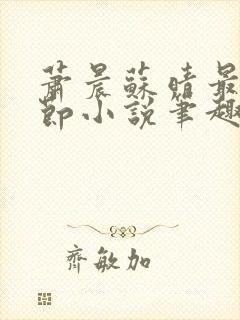 蕭晨蘇晴最
節小說筆趣
齊敏加